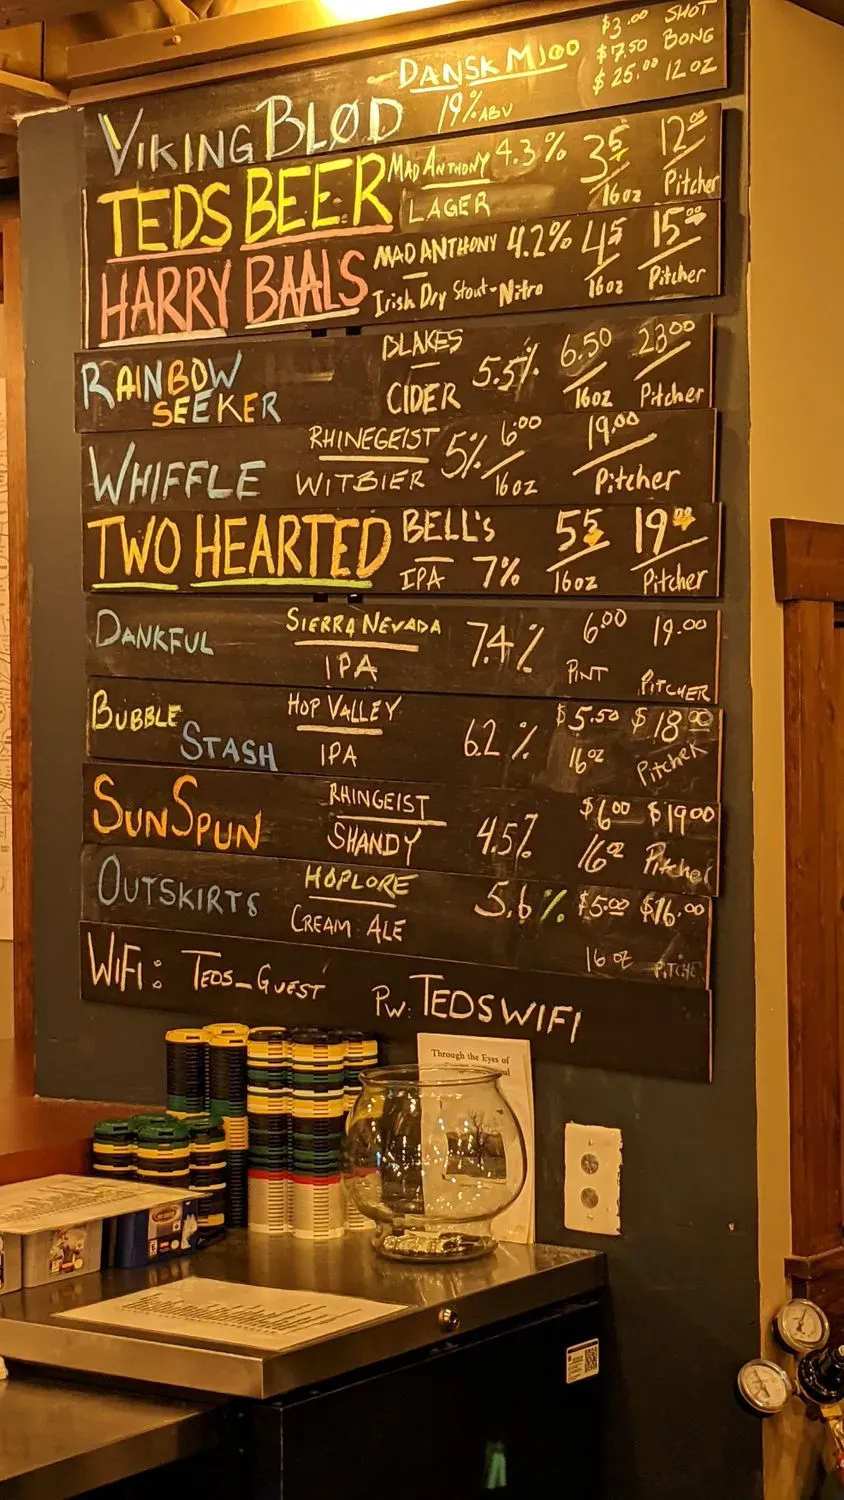 DANSK MJOD $3.00 SHOT
$7.50 BONG
$25.00 12 OZ
VIKING BLØD 19% ABV
TEDS BEER MAD ANTHONY 4.3% 3.5 12.00
LAGER 16oz Pitcher
HARRY BAALS MAD ANTHONY 4.2% 4.5 15.00
Irish Dry Stout-Nitro 16oz Pitcher
RAINBOW BLAKES 5.5% 6.50 23.00
SEEKER CIDER 16oz Pitcher
WHIFFLE RHINEGEIST 5% 6.00 19.00
WITBIER 16oz Pitcher
TWO HEARTED BELL's 55 19.00
IPA 7% 16oz Pitcher
DANKFUL SIERRA NEVADA 7.4% 6.00 19.00
IPA PINT PITCHER
BUBBLE HOP VALLEY 6.2% $5.50 $18.00
STASH IPA 16oz Pitcher
SUNSPUN RHINGEIST 4.5% $6.00 $19.00
SHANDY 16oz Pitcher
OUTSKIRTS HOPLORE 5.6% $5.00 $16.00
CREAM ALE 16 oz PITCHE
WIFI: TEDS_GUEST PW: TEDSWIFI
Through the Eyes of